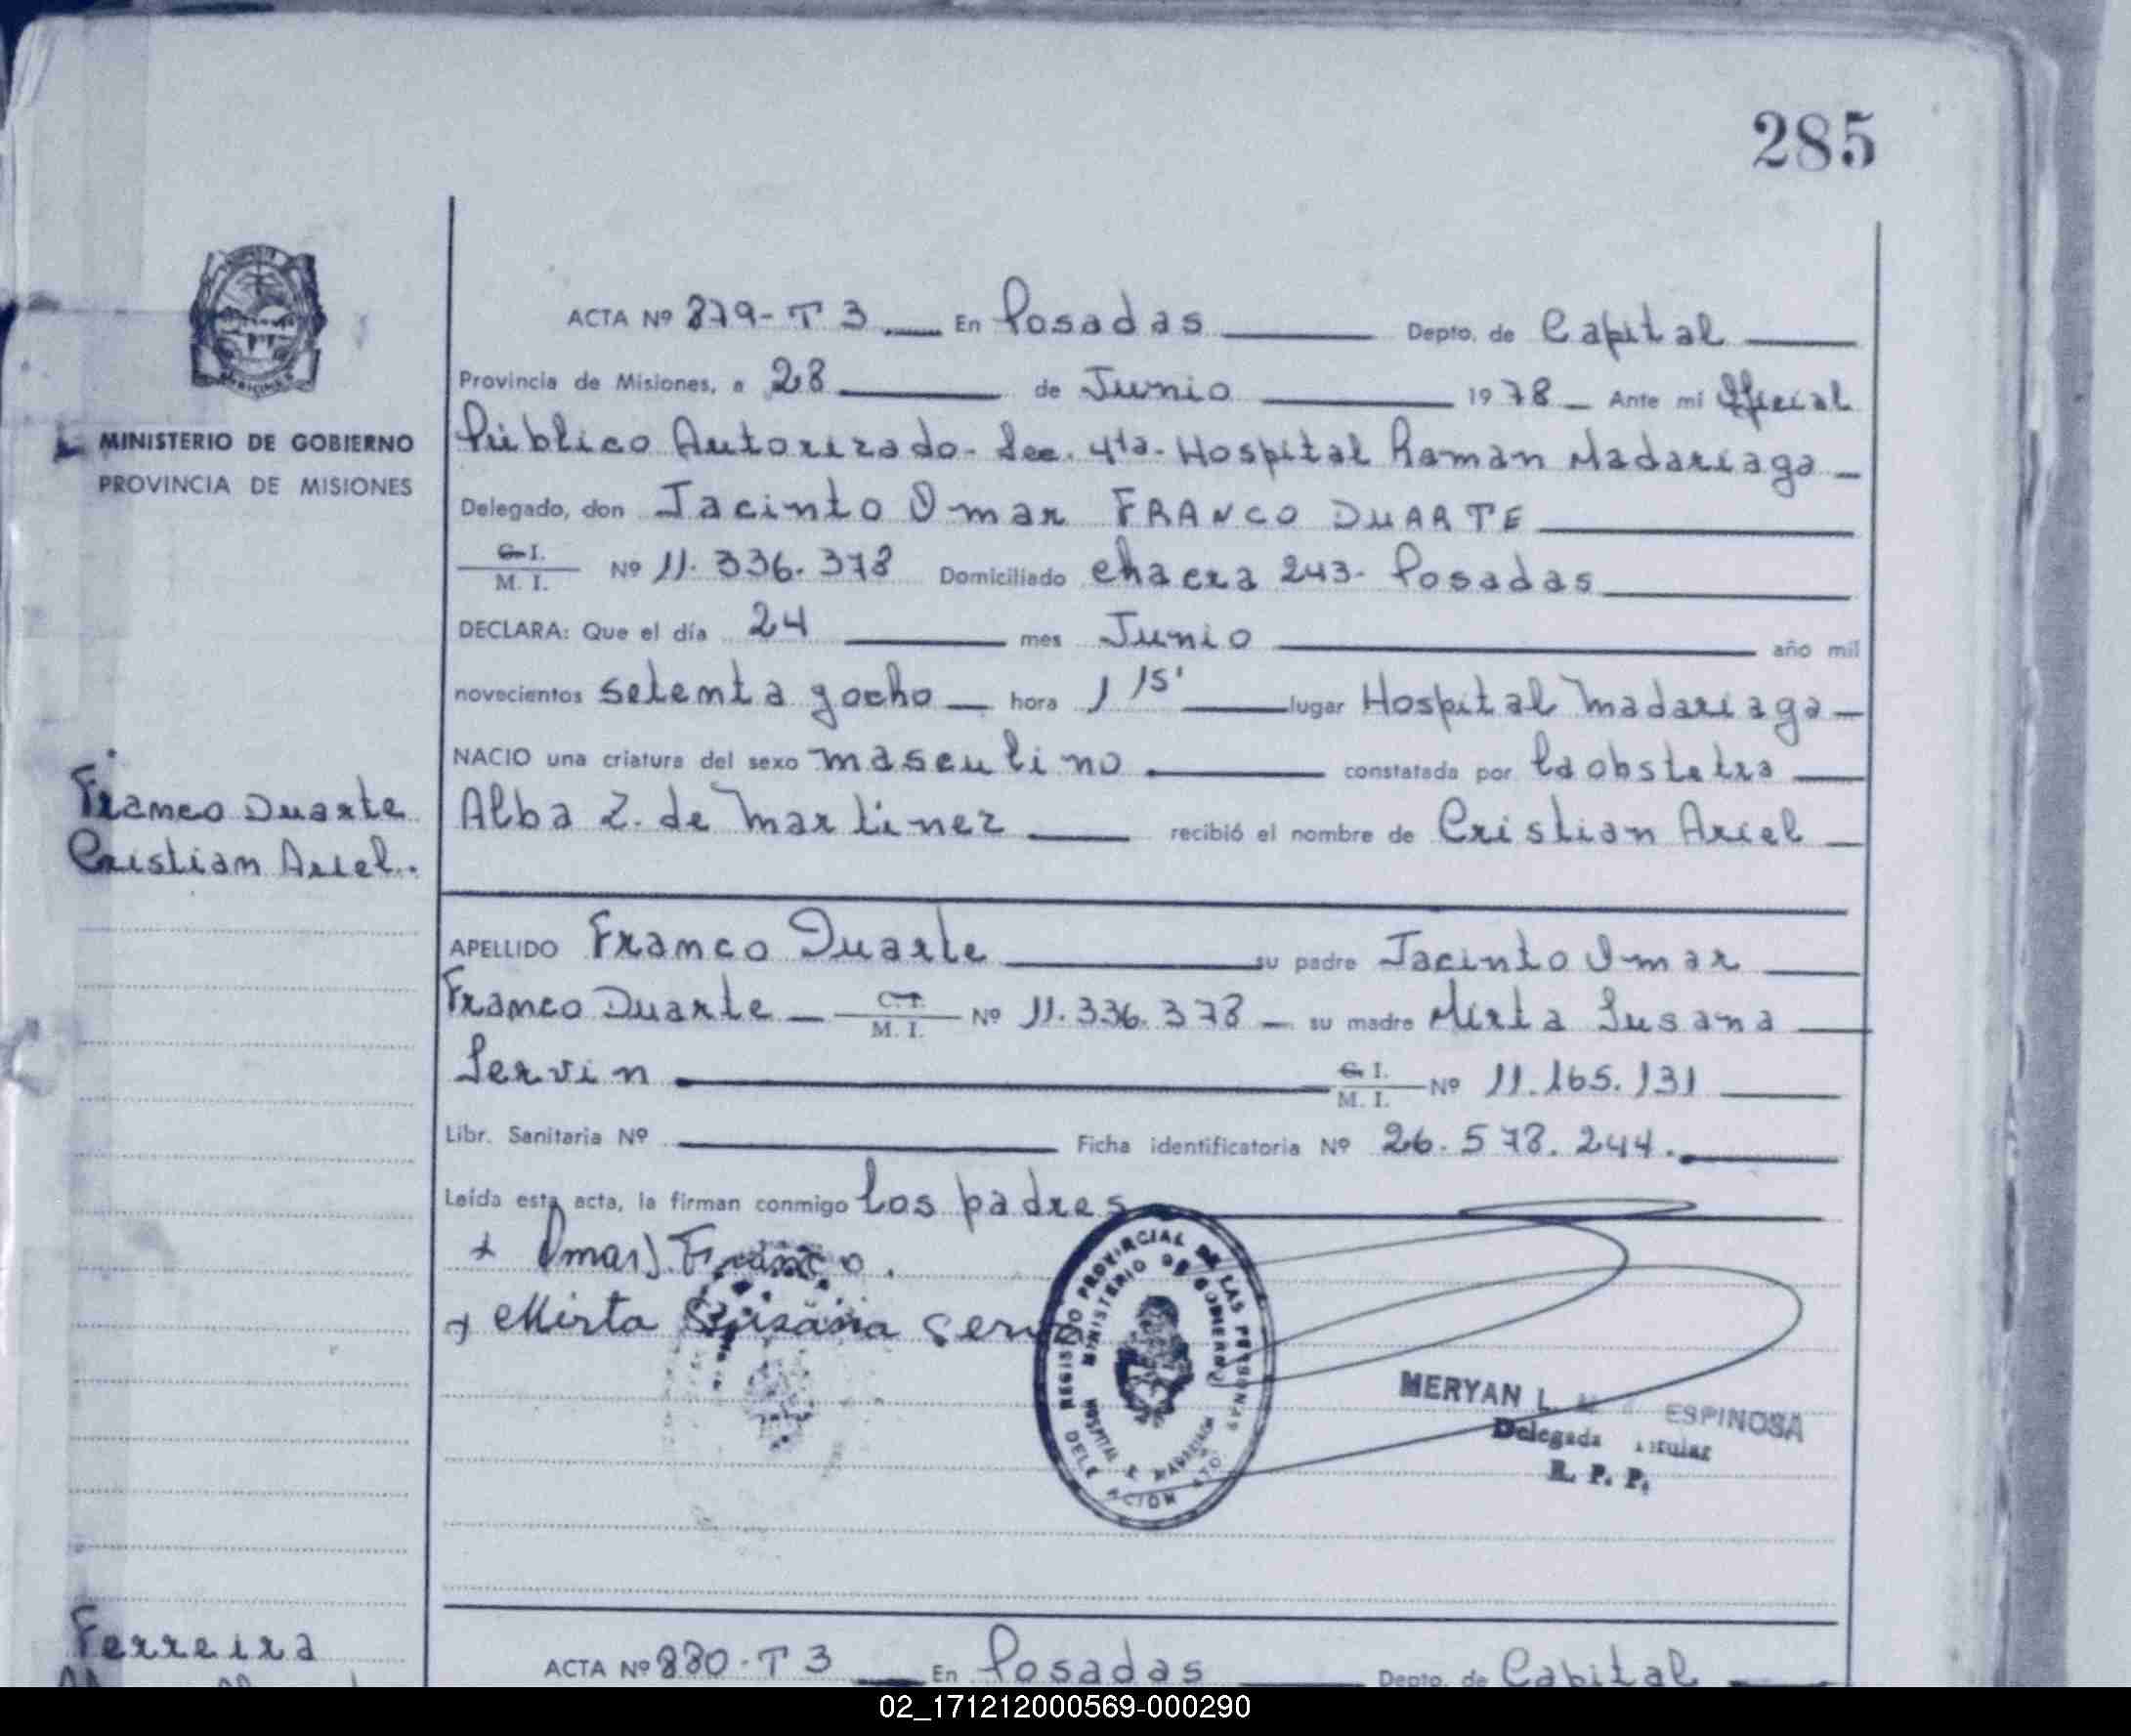 285
ACTA Nº 879-T 3 En Posadas Depto. de Capital
Provincia de Misiones, a 28 de Junio 1978 Ante mi Oficial
Público Autorizado- Sec. 4ta- Hospital Raman Madariaga
MINISTERIO DE GOBIERNO
PROVINCIA DE MISIONES
Delegado, don Jacinto Omar FRANCO DUARTE
C.I. M. I. Nº 11.336.378 Domiciliado chacra 243- Posadas
DECLARA: Que el día 24 mes Junio año mil
novecientos setenta y ocho hora 1 15' lugar Hospital Madariaga
NACIO una criatura del sexo masculino constatada por la obstetra
Franco Duarte
Cristian Ariel.
Alba Z. de Martinez recibió el nombre de Cristian Ariel
APELLIDO Franco Duarte su padre Jacinto Omar
Franco Duarte C.I. M. I. Nº 11.336.378 su madre Mirta Susana
Servin C.I. M. I. Nº 11.165.131
Libr. Sanitaria Nº Ficha identificatoria Nº 26.578.244.
Leída esta acta, la firman conmigo los padres
+ Omar J. Franco.
+ Mirta Susana Servin
REGISTRO PROVINCIAL DE LAS PERSONAS
MINISTERIO DE GOBIERNO
HOSPITAL R. MADARIAGA
DELEGACION
MERYAN L. ESPINOSA
Delegada Titular
R. P. P.
Ferreira
ACTA Nº 880-T 3 En Posadas Depto. de Capital
02_171212000569-000290